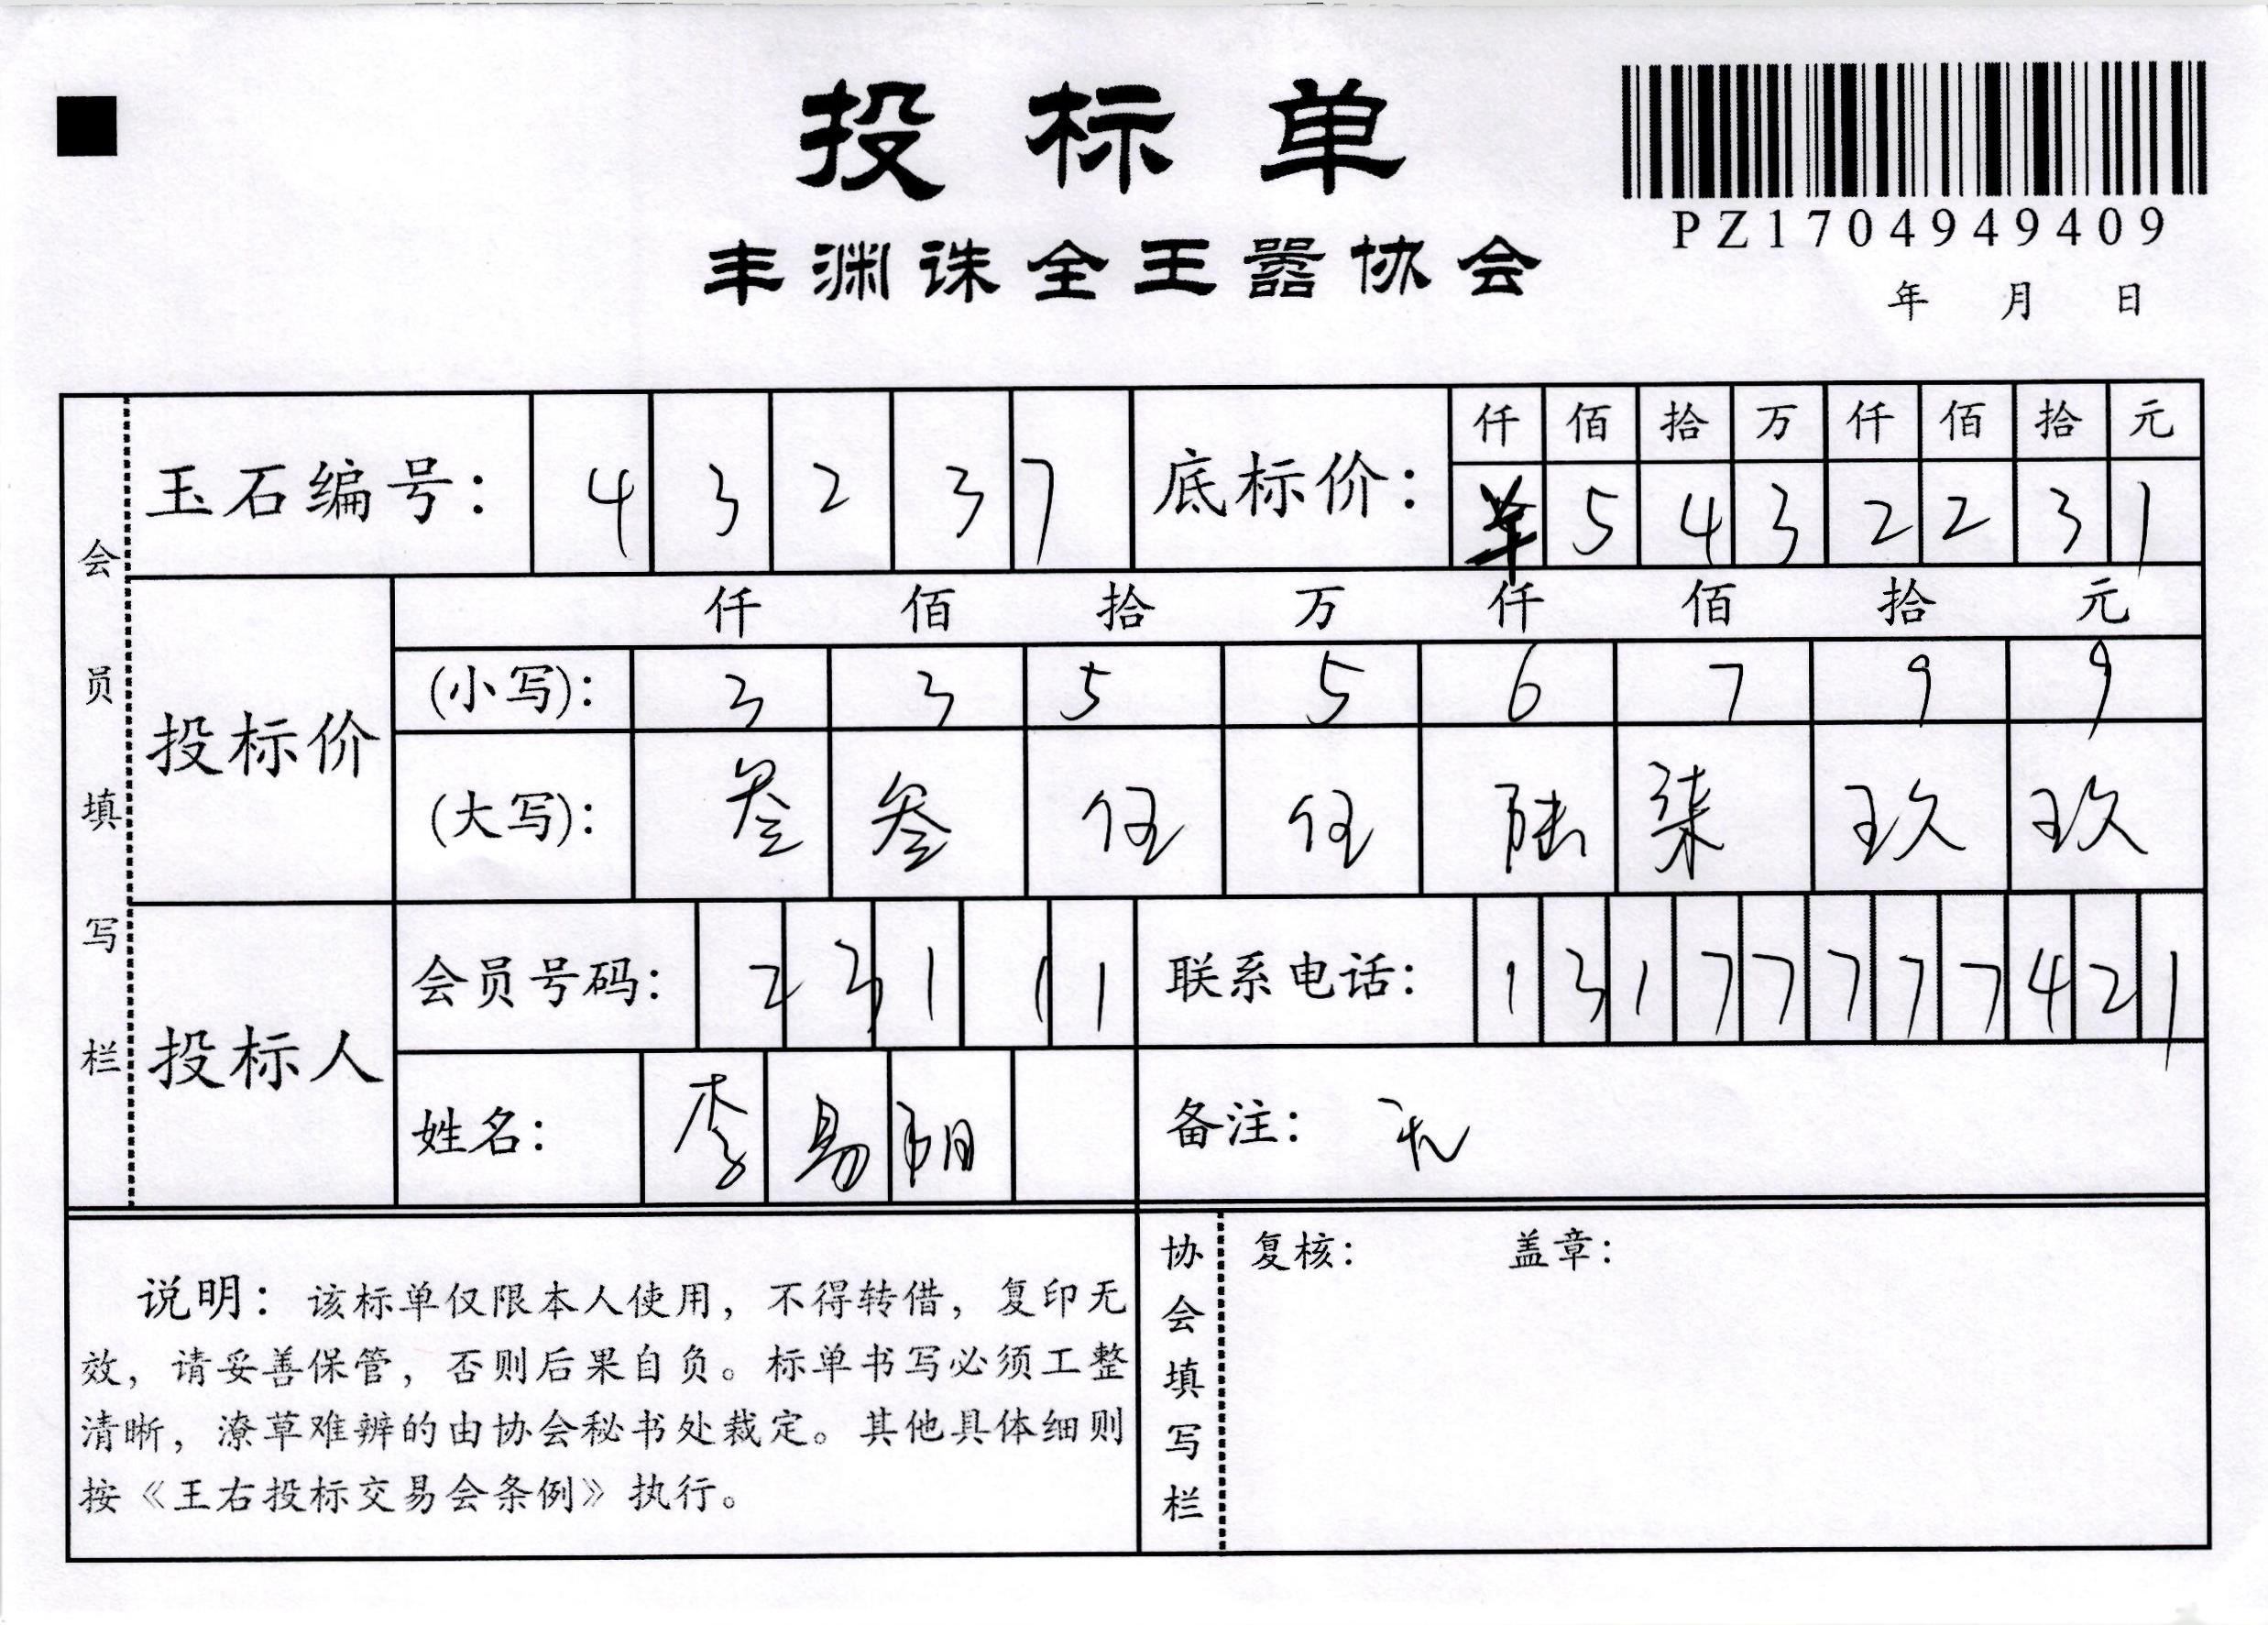 投标单
PZ1704949409
丰渊诛全王嚣协会
年 月 日
会员填写栏
玉石编号: 4 3 2 3 7
底标价: 仟 佰 拾 万 仟 佰 拾 元
¥ 5 4 3 2 2 3 1
投标价
仟 佰 拾 万 仟 佰 拾 元
(小写): 3 3 5 5 6 7 9 9
(大写): 叁 叁 伍 伍 陆 柒 玖 玖
投标人
会员号码: 2 3 1 1 1
联系电话: 1 3 1 7 7 7 7 7 4 2 1
姓名: 李 易 阳
备注: 无
说明: 该标单仅限本人使用, 不得转借, 复印无
效, 请妥善保管, 否则后果自负。标单书写必须工整
清晰, 潦草难辨的由协会秘书处裁定。其他具体细则
按《王右投标交易会条例》执行。
协会填写栏
复核: 盖章: